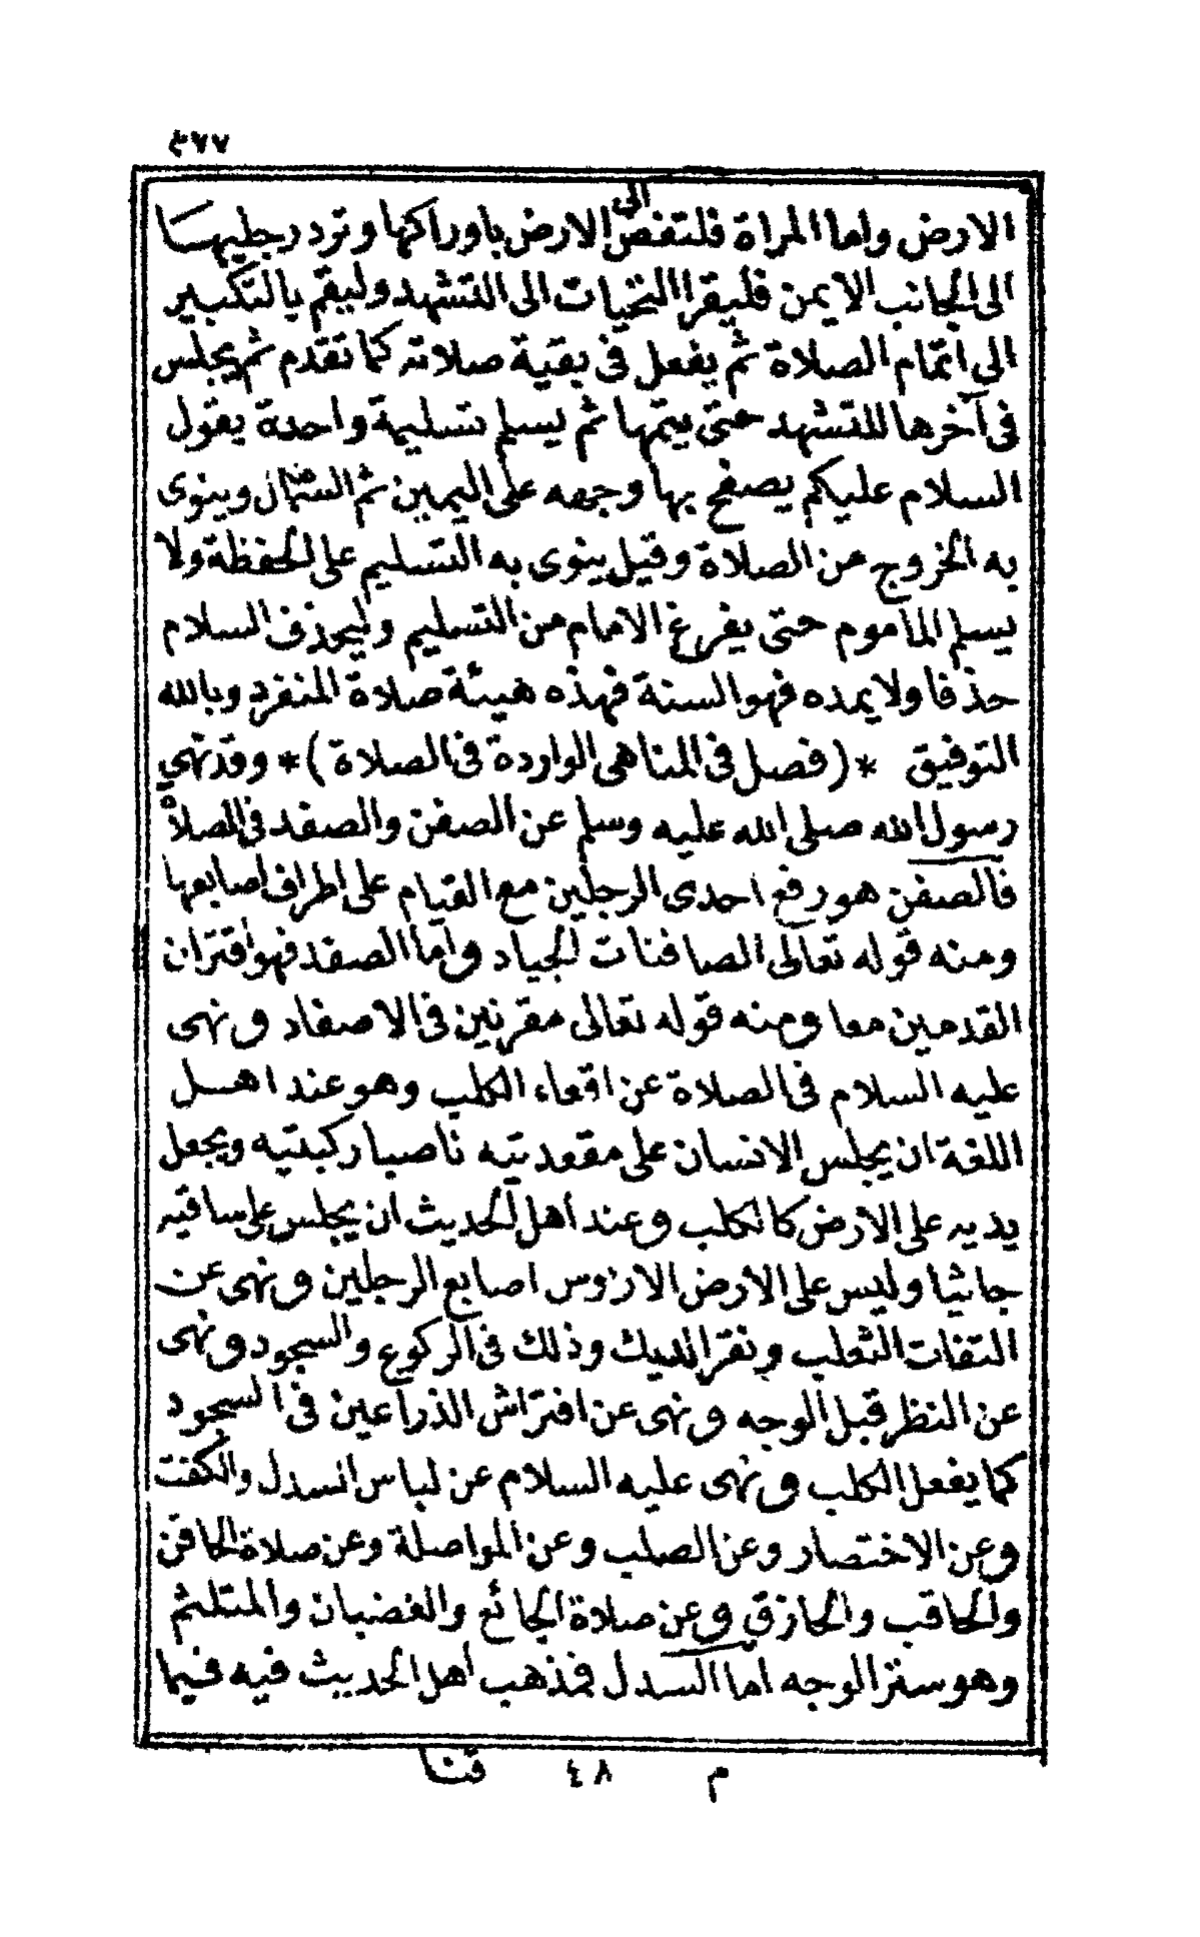 ٣٧٧
الارض واما المراة فلتفض الى الارض باوراكها وترد رجليهـا
الى الجانب الايمن فليقرا التحيات الى التشهد وليقم بالتكبير
الى اتمام الصلاة ثم يفعل فى بقية صلاته كما تقدم ثم يجلس
فى آخرها للتشهد حتى يتمها ثم يسلم تسليمة واحدة يقول
السلام عليكم يصفح بها وجهه على اليمين ثم الشمال وينوى
به الخروج من الصلاة وقيل ينوى به التسليم على الحفظة ولا
يسلم المأموم حتى يفرغ الامام من التسليم وليحذف السلام
حذفا ولا يمده فهو السنة فهذه هيئة صلاة المنفرد وبالله
التوفيق *(فصل فى المناهى الواردة فى الصلاة)* وقد نهى
رسول الله صلى الله عليه وسلم عن الصفن والصفد فى الصلاة
فالصفن هو رفع احدى الرجلين مع القيام على اطراف اصابعها
ومنه قوله تعالى الصافنات الجياد وأما الصفد فهو اقتران
القدمين معا ومنه قوله تعالى مقرنين فى الاصفاد ونهى
عليه السلام فى الصلاة عن اقعاء الكلب وهو عند اهـل
اللغة ان يجلس الانسان على مقعدتيه ناصبا ركبتيه ويجعل
يديه على الارض كالكلب وعند اهل الحديث ان يجلس على ساقيه
جاثيا وليس على الارض الا رؤس اصابع الرجلين ونهى عن
التفات الثعلب ونقر الديك وذلك فى الركوع والسجود ونهى
عن النظر قبل الوجه ونهى عن افتراش الذراعين فى السجود
كما يفعل الكلب ونهى عليه السلام عن لباس السدل والكفت
وعن الاختصار وعن الصلب وعن المواصلة وعن صلاة الحاقن
والحاقب والحازق وعن صلاة الجائع والغضبان والمتلثم
وهو ستر الوجه اما السدل فمذهب أهل الحديث فيه فيما
م ٤٨ قنا